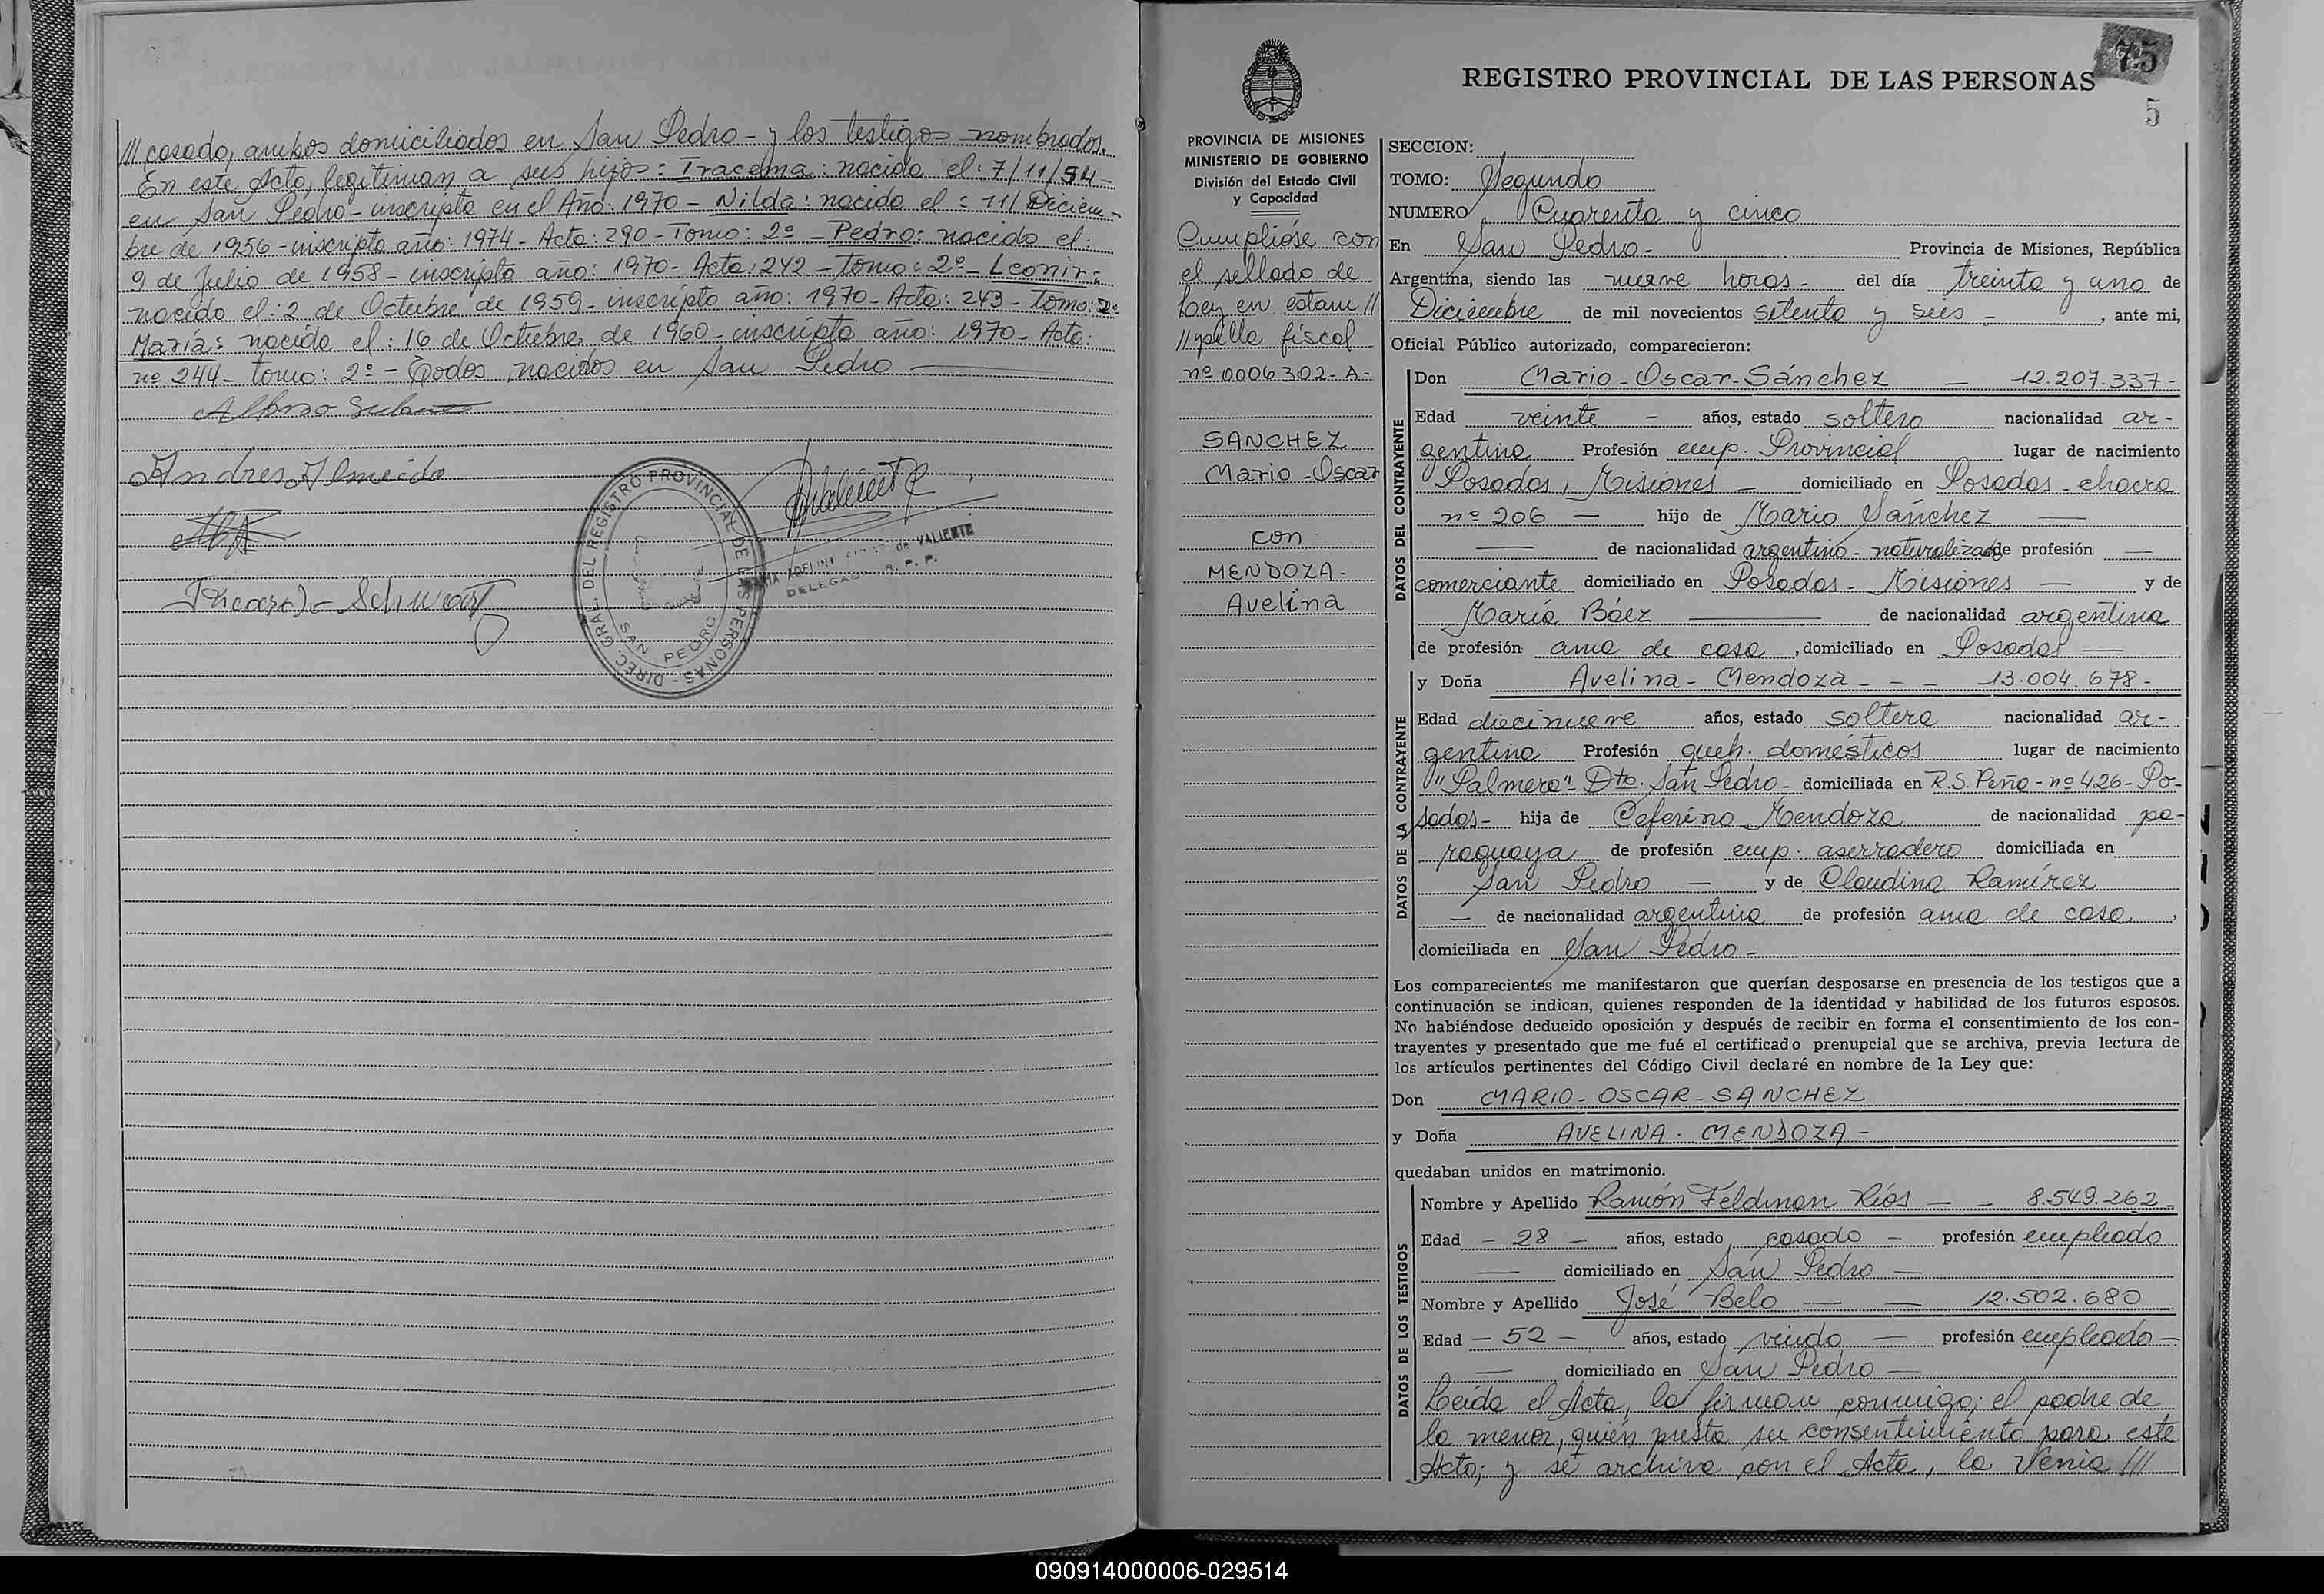 /// casado, ambos domiciliados en San Pedro - y los testigos nombrados.
En este Acto, legitiman a sus hijos: Iracema: nacida el: 7/11/54 -
en San Pedro - inscripta en el Año: 1970 - Nilda: nacida el: 11/ Diciem-
bre de 1956 - inscripta año: 1974 - Acta: 290 - Tomo: 2º - Pedro: nacido el:
9 de Julio de 1958 - inscripto año: 1970 - Acta: 242 - Tomo: 2º - Leonir:
nacido el: 2 de Octubre de 1959 - inscripto año: 1970 - Acta: 243 - tomo: 2º
María: nacida el: 16 de Octubre de 1960 - inscripta año: 1970 - Acta:
nº 244 - tomo: 2º - Todos nacidos en San Pedro
Andres Almeida
DIREC. GRAL. DEL REGISTRO PROVINCIAL DE LAS PERSONAS
SAN PEDRO
de VALIENTE
DELEGADA R. P. P.
75
REGISTRO PROVINCIAL DE LAS PERSONAS
5
PROVINCIA DE MISIONES
MINISTERIO DE GOBIERNO
División del Estado Civil
y Capacidad
Cumplióse con
el sellado de
Ley en estam //
// pilla fiscal
nº 0006302 - A -
SANCHEZ
Mario - Oscar
con
MENDOZA -
Avelina
SECCION:
TOMO: Segundo
NUMERO Cuarenta y cinco
En San Pedro - Provincia de Misiones, República
Argentina, siendo las nueve horas - del día treinta y uno de
Diciembre de mil novecientos setenta y seis - , ante mi,
Oficial Público autorizado, comparecieron:
DATOS DEL CONTRAYENTE
Don Mario - Oscar - Sánchez - 12.207.337 -
Edad veinte - años, estado soltero nacionalidad ar-
gentina Profesión emp. Provincial lugar de nacimiento
Posadas, Misiones - domiciliado en Posadas - chacra
nº 206 - hijo de Mario Sánchez -
- de nacionalidad argentino - naturalizado de profesión -
comerciante domiciliado en Posadas - Misiones - y de
María Báez de nacionalidad argentina
de profesión ama de casa , domiciliado en Posadas -
DATOS DE LA CONTRAYENTE
y Doña Avelina - Mendoza - - - 13.004.678 -
Edad diecinueve años, estado soltera nacionalidad ar-
gentina Profesión queh. domésticos lugar de nacimiento
"Palmera" - Dto. San Pedro - domiciliada en R.S. Peña - nº 426 - Po-
sadas - hija de Ceferino Mendoza de nacionalidad pa-
raguaya de profesión emp. aserradero domiciliada en
San Pedro - y de Claudina Ramírez
- de nacionalidad argentina de profesión ama de casa ,
domiciliada en San Pedro -
Los comparecientes me manifestaron que querían desposarse en presencia de los testigos que a
continuación se indican, quienes responden de la identidad y habilidad de los futuros esposos.
No habiéndose deducido oposición y después de recibir en forma el consentimiento de los con-
trayentes y presentado que me fué el certificado prenupcial que se archiva, previa lectura de
los artículos pertinentes del Código Civil declaré en nombre de la Ley que:
Don MARIO - OSCAR - SANCHEZ
y Doña AVELINA - MENDOZA -
quedaban unidos en matrimonio.
DATOS DE LOS TESTIGOS
Nombre y Apellido Ramón Feldman Ríos - - 8.549.262 -
Edad - 28 - años, estado casado - profesión empleado
- domiciliado en San Pedro -
Nombre y Apellido José Belo - - 12.502.680
Edad - 52 - años, estado viudo - profesión empleado -
- domiciliado en San Pedro -
Leída el Acta, la firman conmigo; el padre de
la menor, quién presta su consentimiento para este
Acto; y se archiva con el Acta, la Venia ///
090914000006-029514